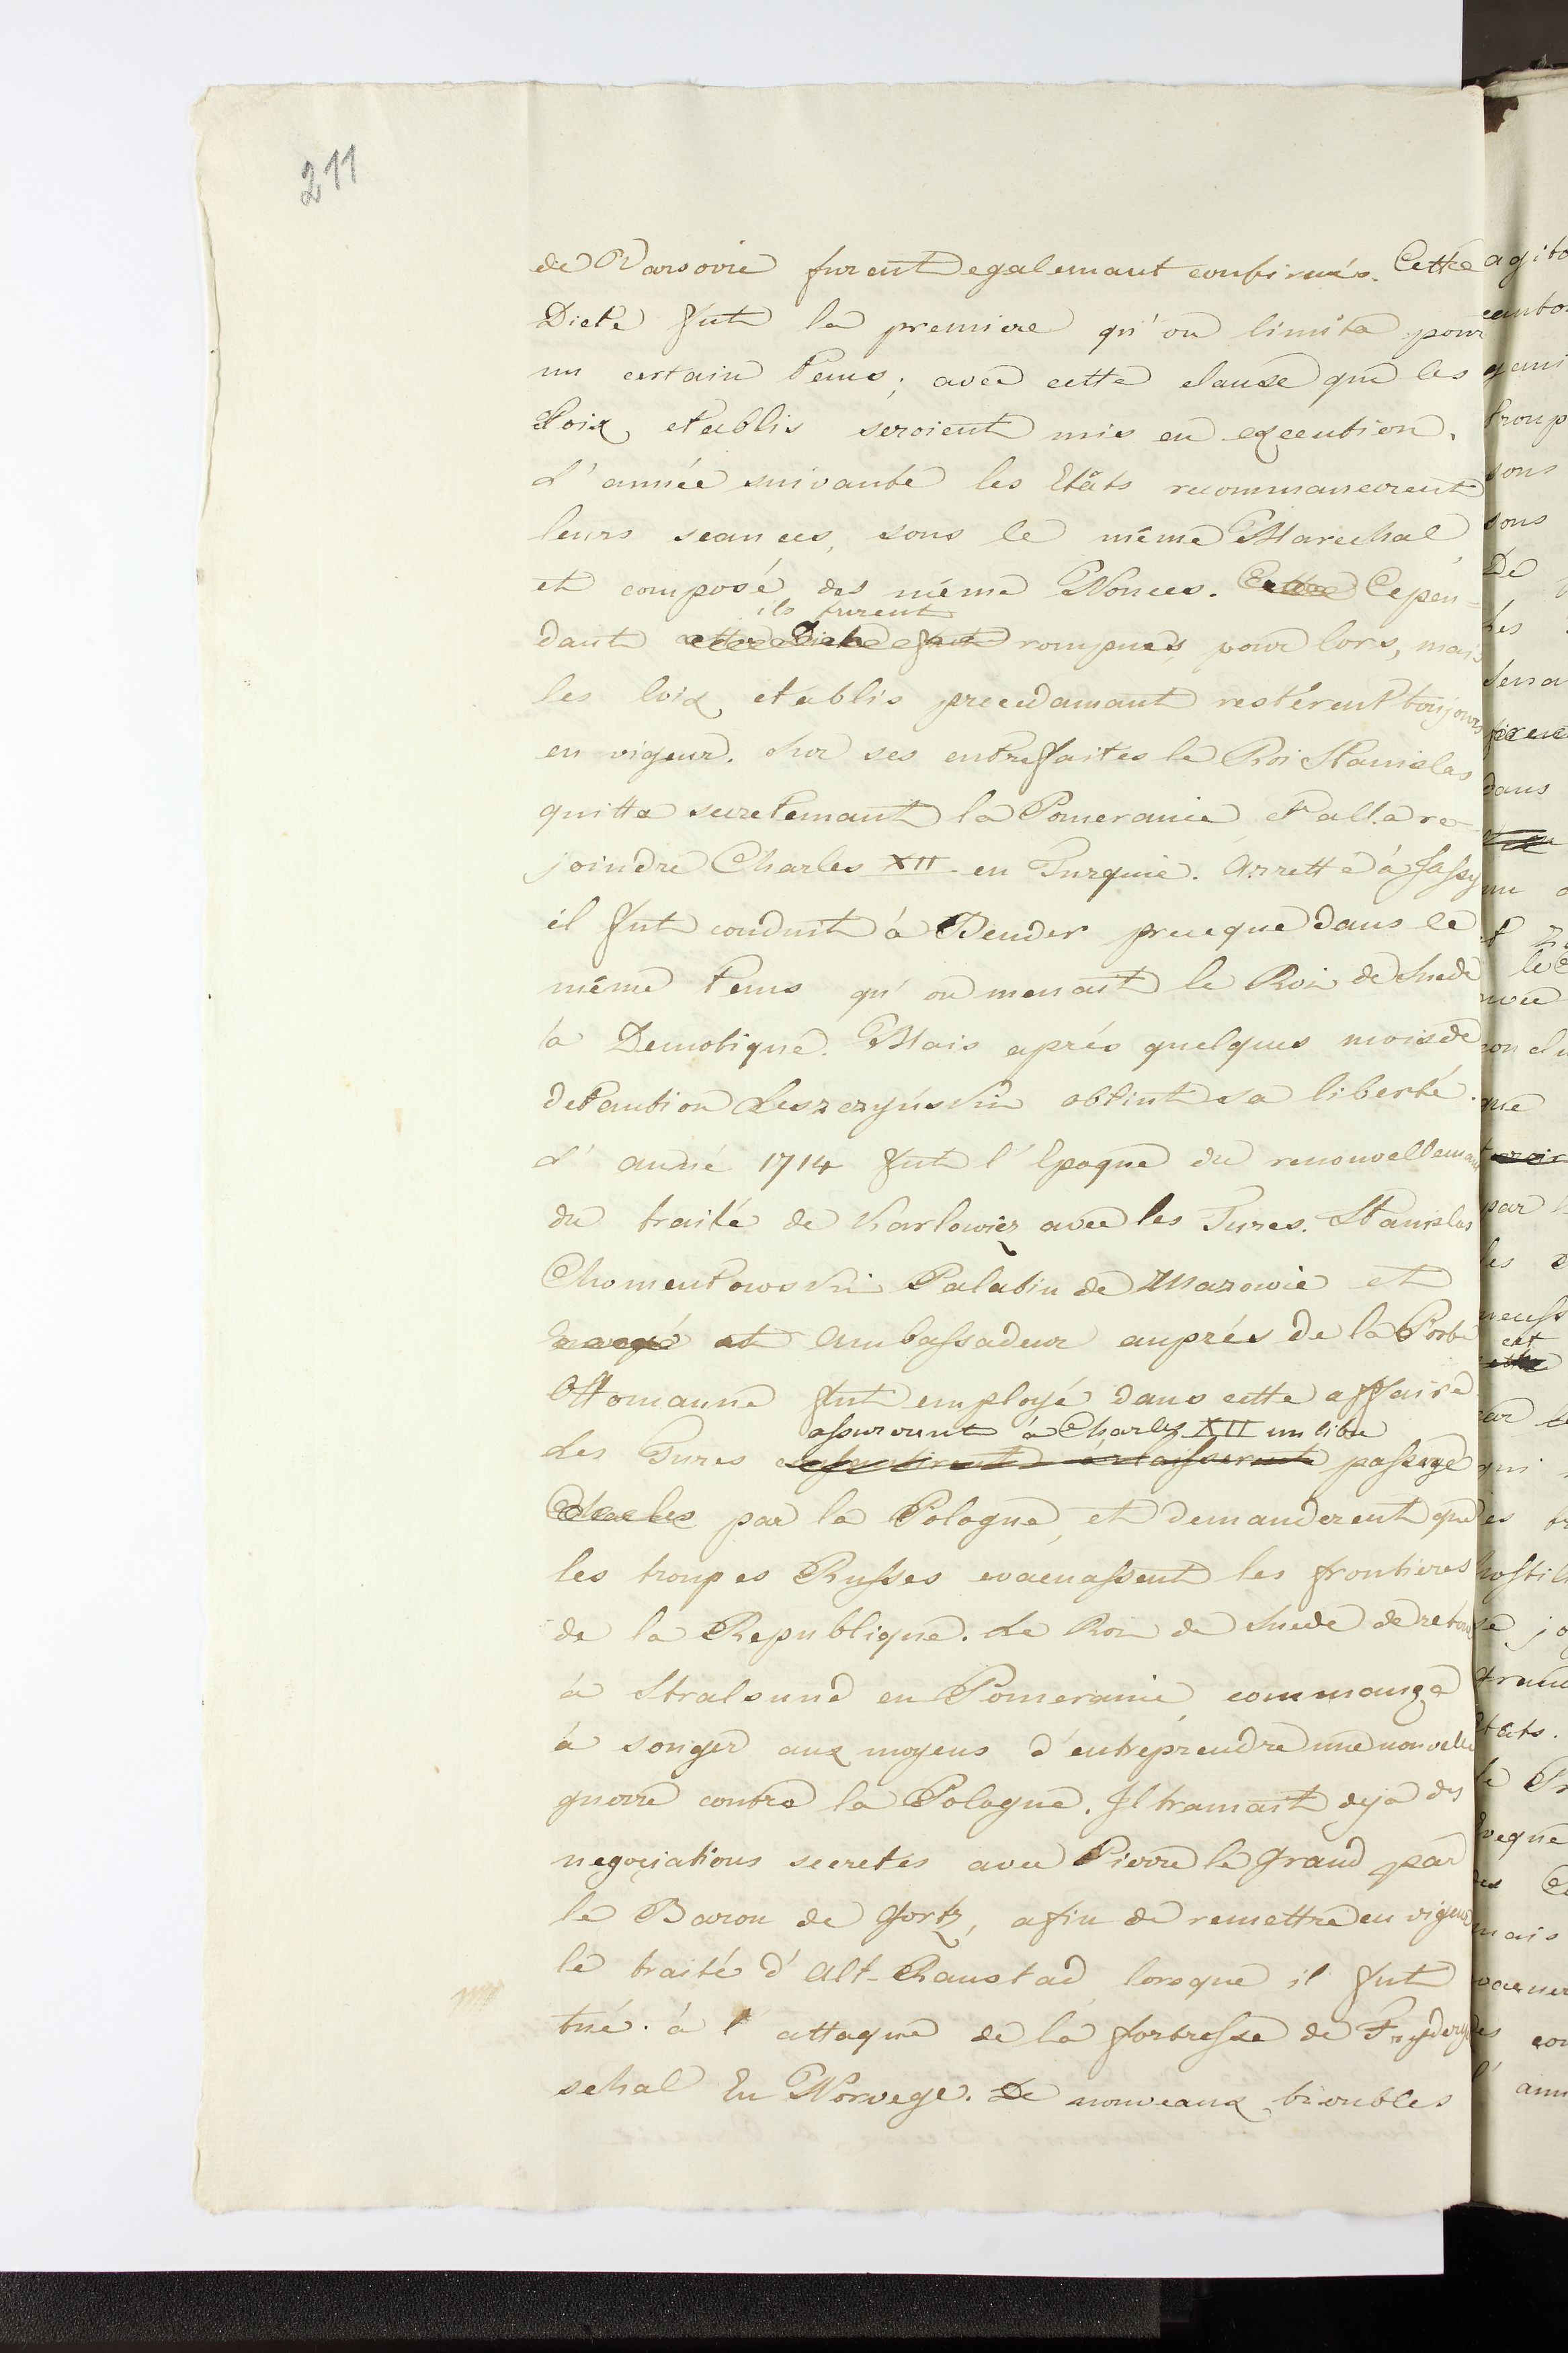 211
de Varsovie furent egalemant confirmés. Cette
Diete fut la premiere qu'on limita pour
un certain tems; avec cette clause que les
Loix etablis seroient mis en execution.
L'année suivante les Etâts recommancerent
leurs seances, sous le même Marechal,
et composé des même Nonces. Cette Cepen-
ils furent
dant cette Diete fut rompues, pour lors, mais
les loix etablis precedamant restèrent toujours
en vigeur. Sur ses entrefaites le Roi Stanislas
quitta secretemant la Pomeranie et alla re-
joindre Charles XII en Turquie. Arretté à Jassy
il fut conduit à Bender preceque dans le
même tems qu'on menait le Roi de Suede
à Demotique. Mais aprés quelques mois de
detantion Leszczyński obtint sa liberté.
L'anné 1714 fut l'Epoque du renouvellemant
du traité de Karlowicz avec les Turcs. Stanislas
Chomentowski Palatin de Mazowie et
et Ambassadeur auprés de la Porte
Ottomanne fut employé dans cette affaire
assurerent à Charles XII un libre
Les Turcs passage
Charles par la Pologne, et demanderent que
les troupes Russes evacuassent les frontieres
de la Republique. Le Roi de Suede de retour
à Stralsund en Pomeranie, commança
à songer aux moyens d'entreprendre une nouvelle
guerre contre la Pologne. Il tramait deja des
negociations secretes avec Pierre le Grand par
le Baron de Gortz, afin de remettre en vigeur
le traité d'Alt-Ranstad, lorsque il fut
tué à l'attaque de la fortresse de Fryderyc
schal En Norvege. De nouveaux troubles